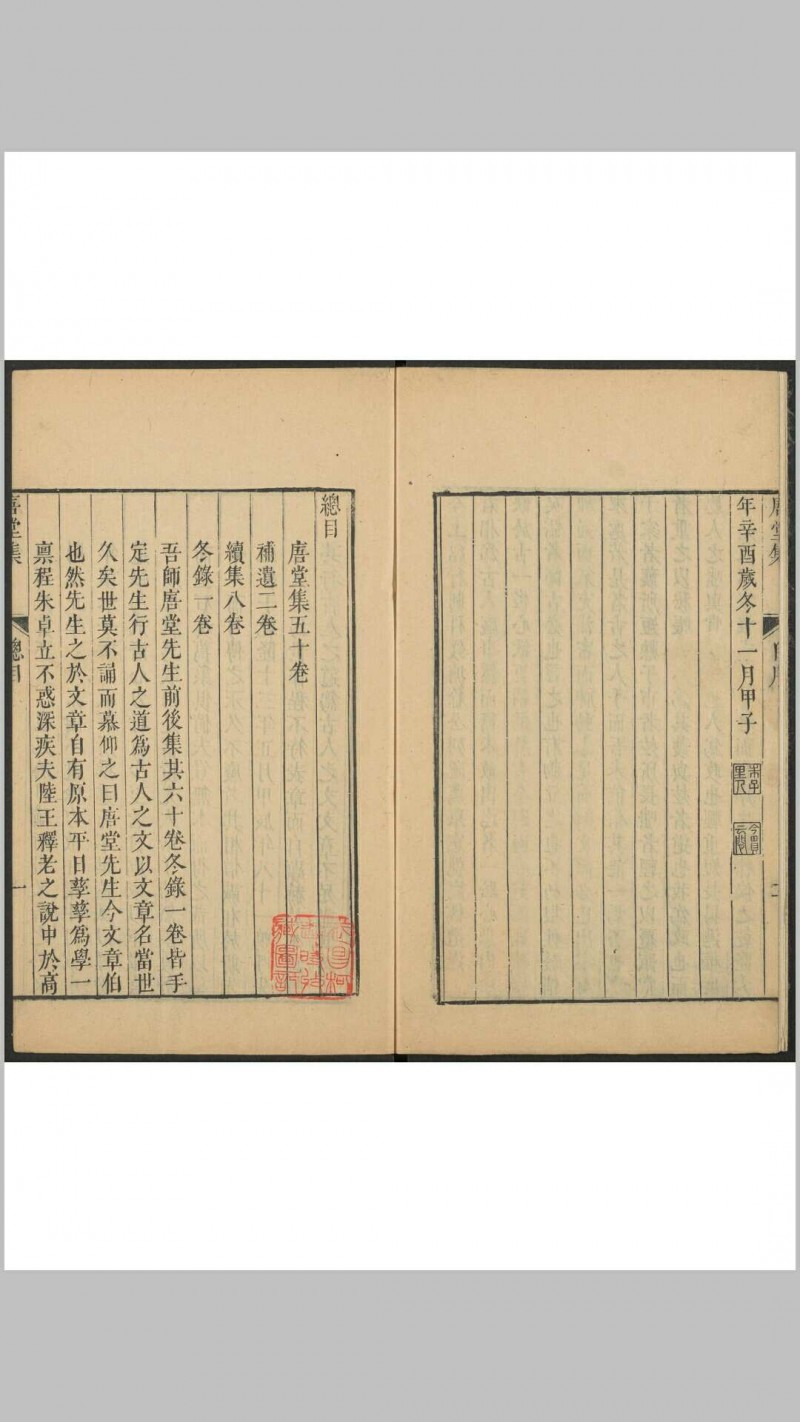 年辛酉歲冬十一月甲子
總目
唐堂集五十卷
補遺二卷
續集八卷
冬錄一卷
吾師唐堂先生前後集其六十卷冬錄一卷皆手
定先生行古人之道為古人之文以文章名當世
久矣世莫不誦而慕仰之曰唐堂先生今文章伯
也然先生之於文章自有原本平日孳孳為學一
禀程朱卓立不惑深疾夫陸王釋老之說中於高
總目
一